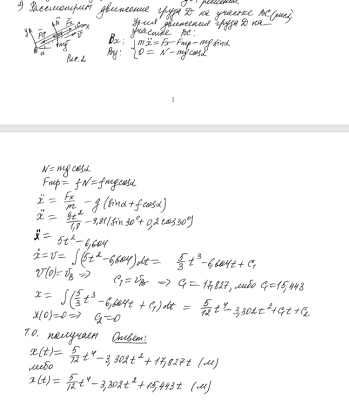 2) Рассмотрим движение груза D на участке BC (рис.
Ур-ия движения груза D на
участке BC:
Bx: mẍ = Fx - Fтр - mg sinα
By: 0 = N - mg cosα
Рис. 2
1
N = mg cosα
Fтр = fN = fmg cosα
ẍ = Fx/m - g (sinα + f cosα)
ẍ = 9t²/1,8 - 9,81 (sin 30° + 0,2 cos 30°)
ẍ = 5t² - 6,604
ẋ = v = ∫(5t² - 6,604)dt = 5/3 t³ - 6,604t + C₁
v(0) = v_B => C₁ = v_B => C₁ = 17,827, либо C₁ = 15,443
x = ∫(5/3 t³ - 6,604t + C₁)dt = 5/12 t⁴ - 3,302t² + C₁t + C₂
x(0) = 0 => C₂ = 0
Т.о. получаем Ответ:
x(t) = 5/12 t⁴ - 3,302t² + 17,827t (м)
либо
x(t) = 5/12 t⁴ - 3,302t² + 15,443t (м)